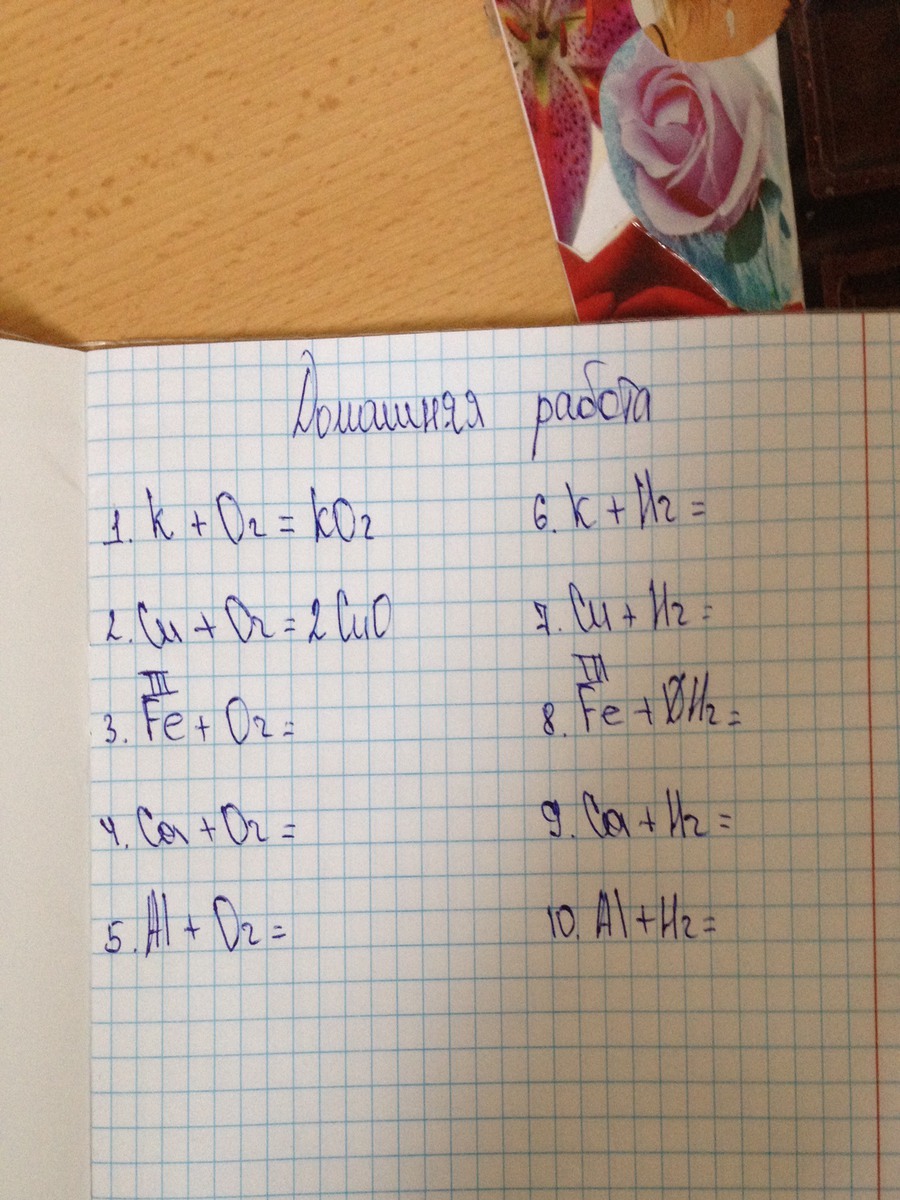 Домашняя работа
1. K + O2 = KO2
2. Cu + O2 = 2CuO
III
3. Fe + O2 =
4. Ca + O2 =
5. Al + O2 =
6. K + H2 =
7. Cu + H2 =
III
8. Fe + H2 =
9. Ca + H2 =
10. Al + H2 =